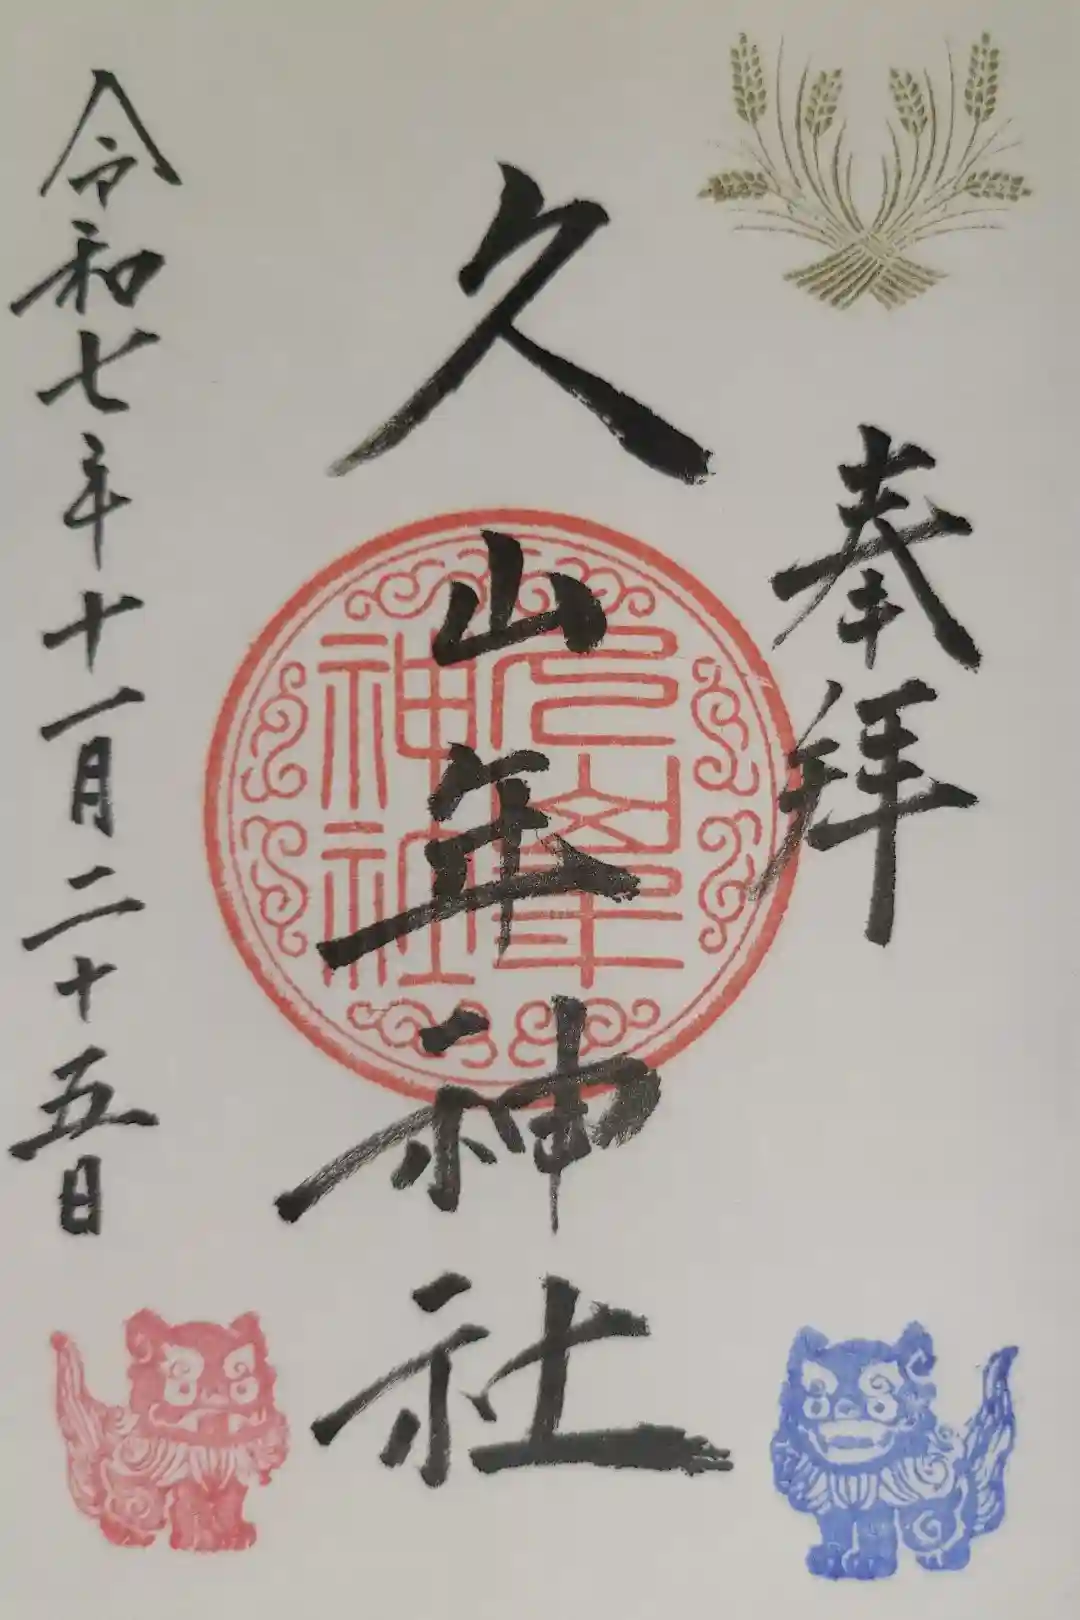 奉拝
久山年神社
久山年
神社
令和七年十一月二十五日